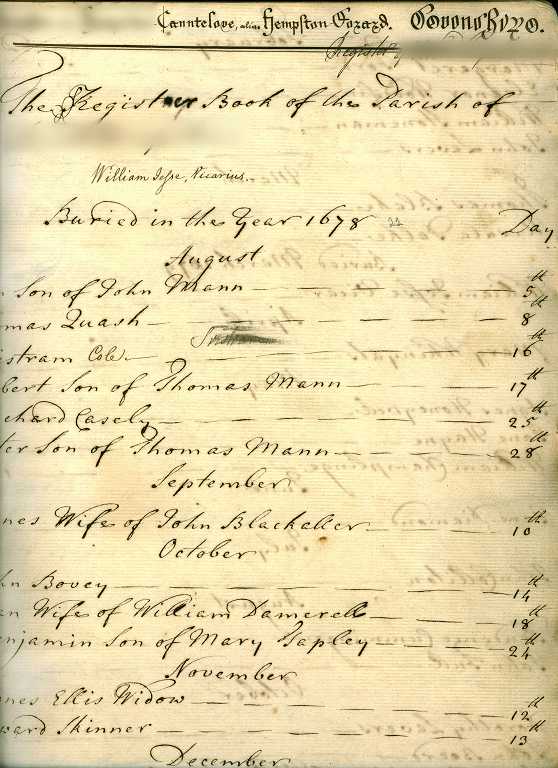 Canntelove, alias Hempston Cozard.
Register
The Register Book of the Parish of
William Jesse, Vicarius.
Buried in the Year 1678 22 Day
August
Son of John Mann 5th
mas Quash 8th
istram Cole 16th
bert Son of Thomas Mann 17th
chard Casely 25th
ter Son of Thomas Mann 28th
September
nes Wife of John Blackaller 10th
October
hn Bovey 14th
an Wife of William Damerell 18th
njamin Son of Mary Tapley 24th
November
nes Ellis Widow 12th
ward Skinner 13th
December